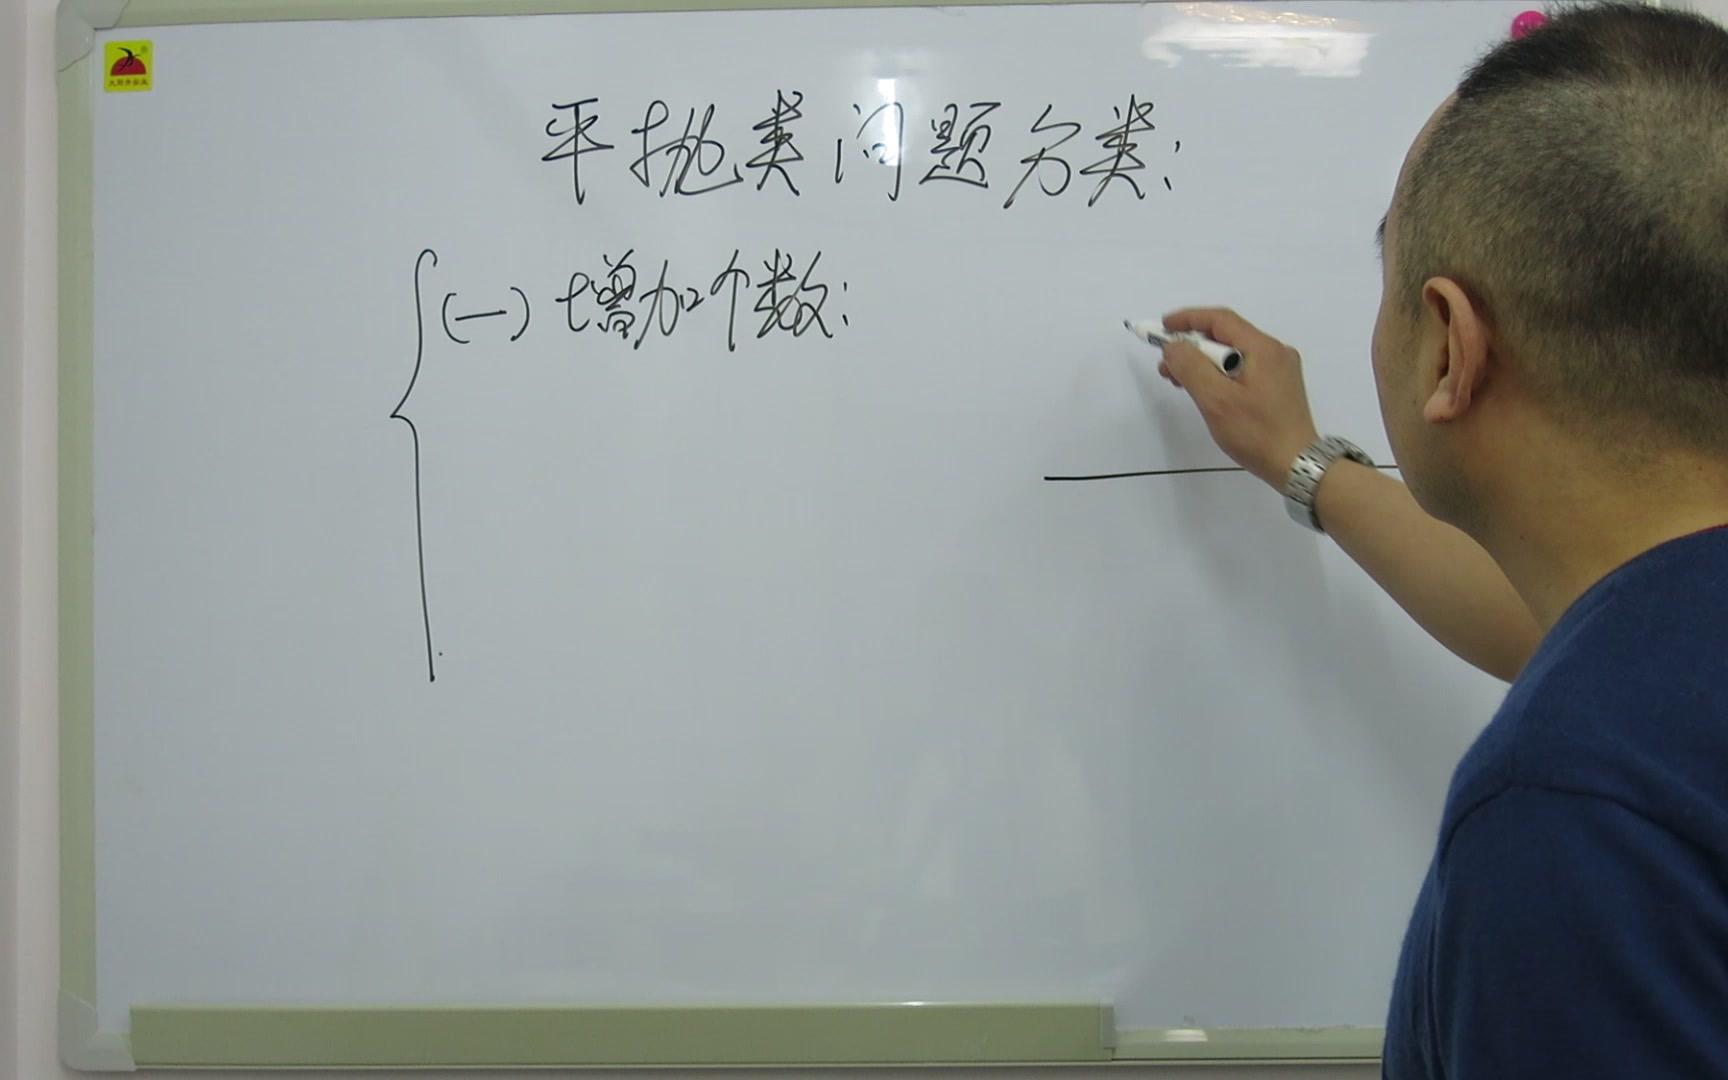 平抛类问题分类:
(一) 增加个数: